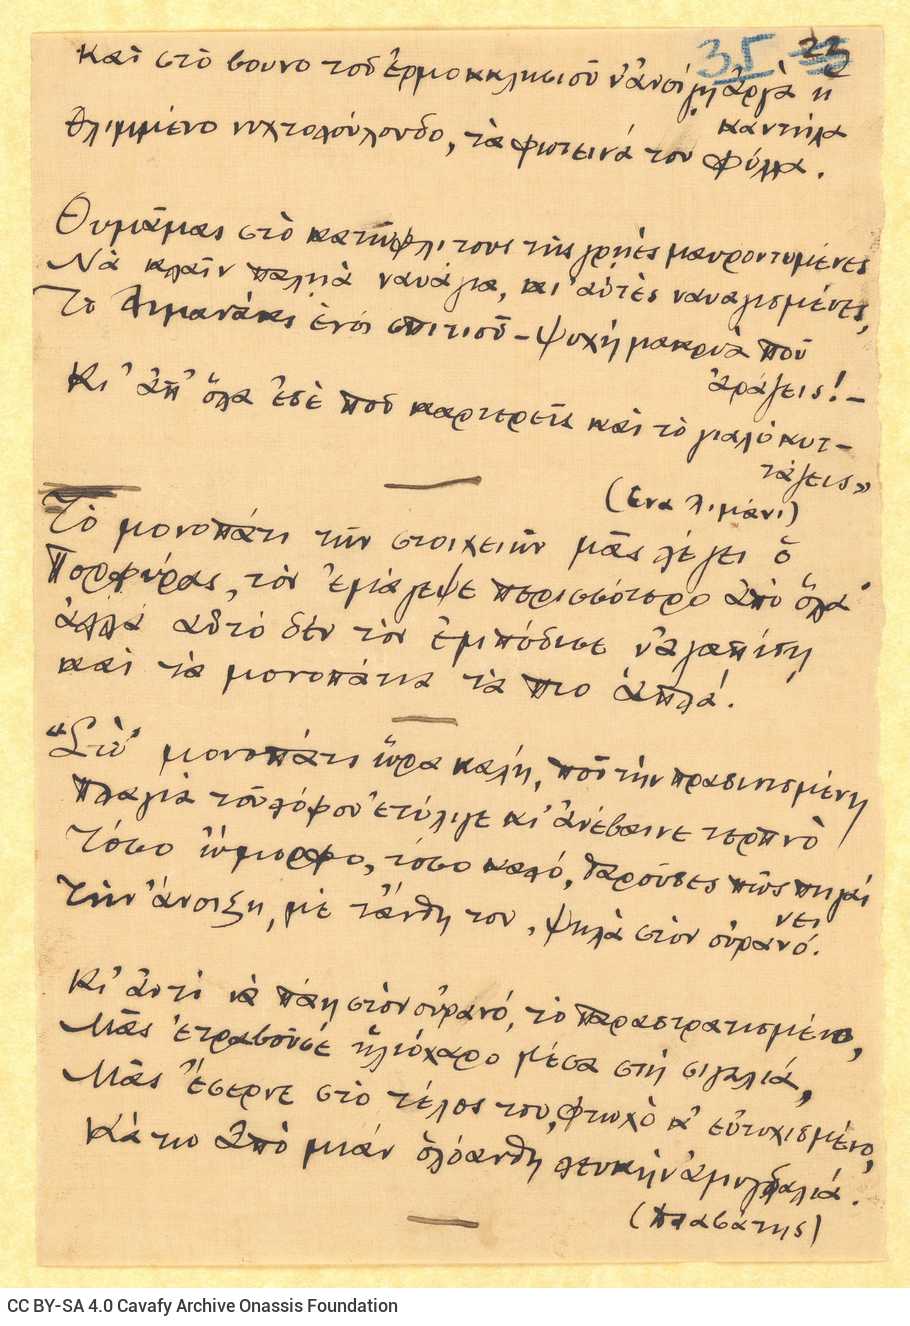 35 23
Καὶ στὸ βουνο τοῦ ἐρμοκκλησιοῦ ν' ἀνοίγῃ ἀργὰ ἡ
καντήλα
θλιμμένο νυχτολούλουδο, τὰ φωτεινά του φύλλα.
Θυμᾶμας στὸ κατώφλι τους τὶς γρηὲς μαυροντυμένες
Νὰ κλαῖν παληὰ ναυάγια, κι' αὐτὲς ναυαγισμένες,
Τὸ λιμανάκι ἑνὸς σπιτιοῦ – ψυχή μακρυὰ ποῦ
ἀράζεις! –
Κι' ἀπ' ὅλα ἐσὲ ποῦ καρτερεῖς καὶ τὸ γιαλό κυτ-
τάζεις»
(Ενα λιμάνι)
Τὸ μονοπάτι τῶν στοιχειῶν μᾶς λέγει ὁ
Πορφύρας, τὸν ἐμάγεψε περισσότερο ἀπὸ ὅλα
ἀλλὰ αὐτὸ δὲν τὸν ἐμπόδισε ν' ἀγαπήσῃ
καὶ τὰ μονοπάτια τὰ πιο ἁπλά.
"Στὸ μονοπάτι ὥρα καλή, ποῦ τὴν πρασινισμένη
πλαγιὰ τοῦ λόφου ἐτύλιγε κι' ἀνέβαινε τερπνὸ
Τόσο ὤμορφο, τόσο καλό, θαρούσες πῶς πηγαί
νει
Τὴν ἄνοιξη, μὲ τἄνθη του, ψηλὰ στὸν οὐρανό.
Κι' ἀντὶ νὰ πάῃ στὸν οὐρανό, τὸ παραστρατισμένο,
Μᾶς ἐτραβοῦσε ἡλιόχαρο μέσα στὴ σιγαλιά,
Μᾶς ἔσερνε στὸ τέλος του, φτωχὸ κ' εὐτυχισμένο,
Κάτω ἀπὸ μιάν ὁλόανθη λευκὴν ἀμυγδαλιά.
(Διαβάτης)
CC BY-SA 4.0 Cavafy Archive Onassis Foundation